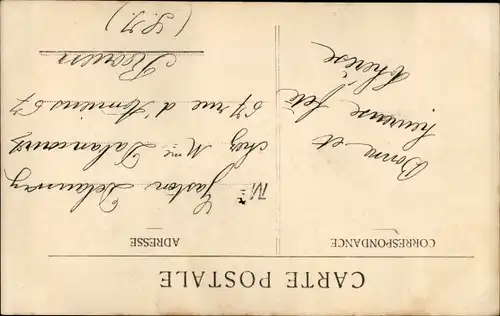 CARTE POSTALE
CORRESPONDANCE
Bonne et
heureuse fête
Thérèse
ADRESSE
Mr Gaston Delaunay
chez Mme
67 rue d'Amiens 67
Rouen
(S. I.)